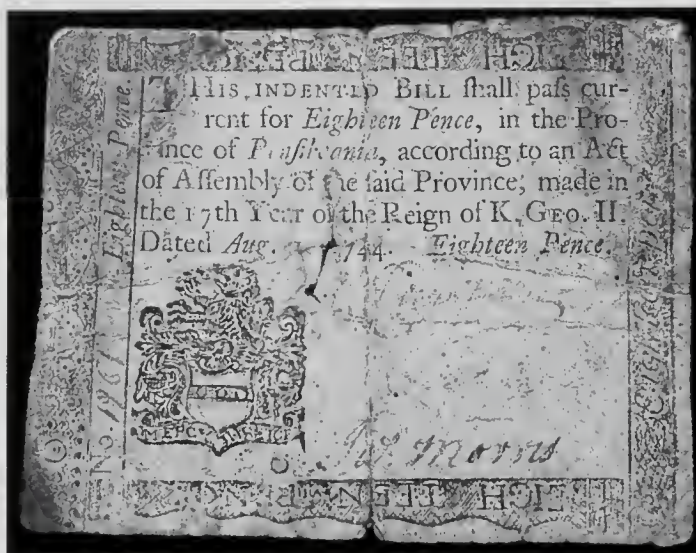 EIGHTEEN PENCE
THIS INDENTED BILL ſhall paſs cur-
rent for Eighteen Pence, in the Pro-
vince of Penſilvania, according to an Act
of Aſſembly of the ſaid Province, made in
the 17th Year of the Reign of K. GEO. II.
Dated Aug. 1744. Eighteen Pence.
Eighteen Pence.
No.
MERCY JUSTICE
Morris
EIGHTEEN PENCE